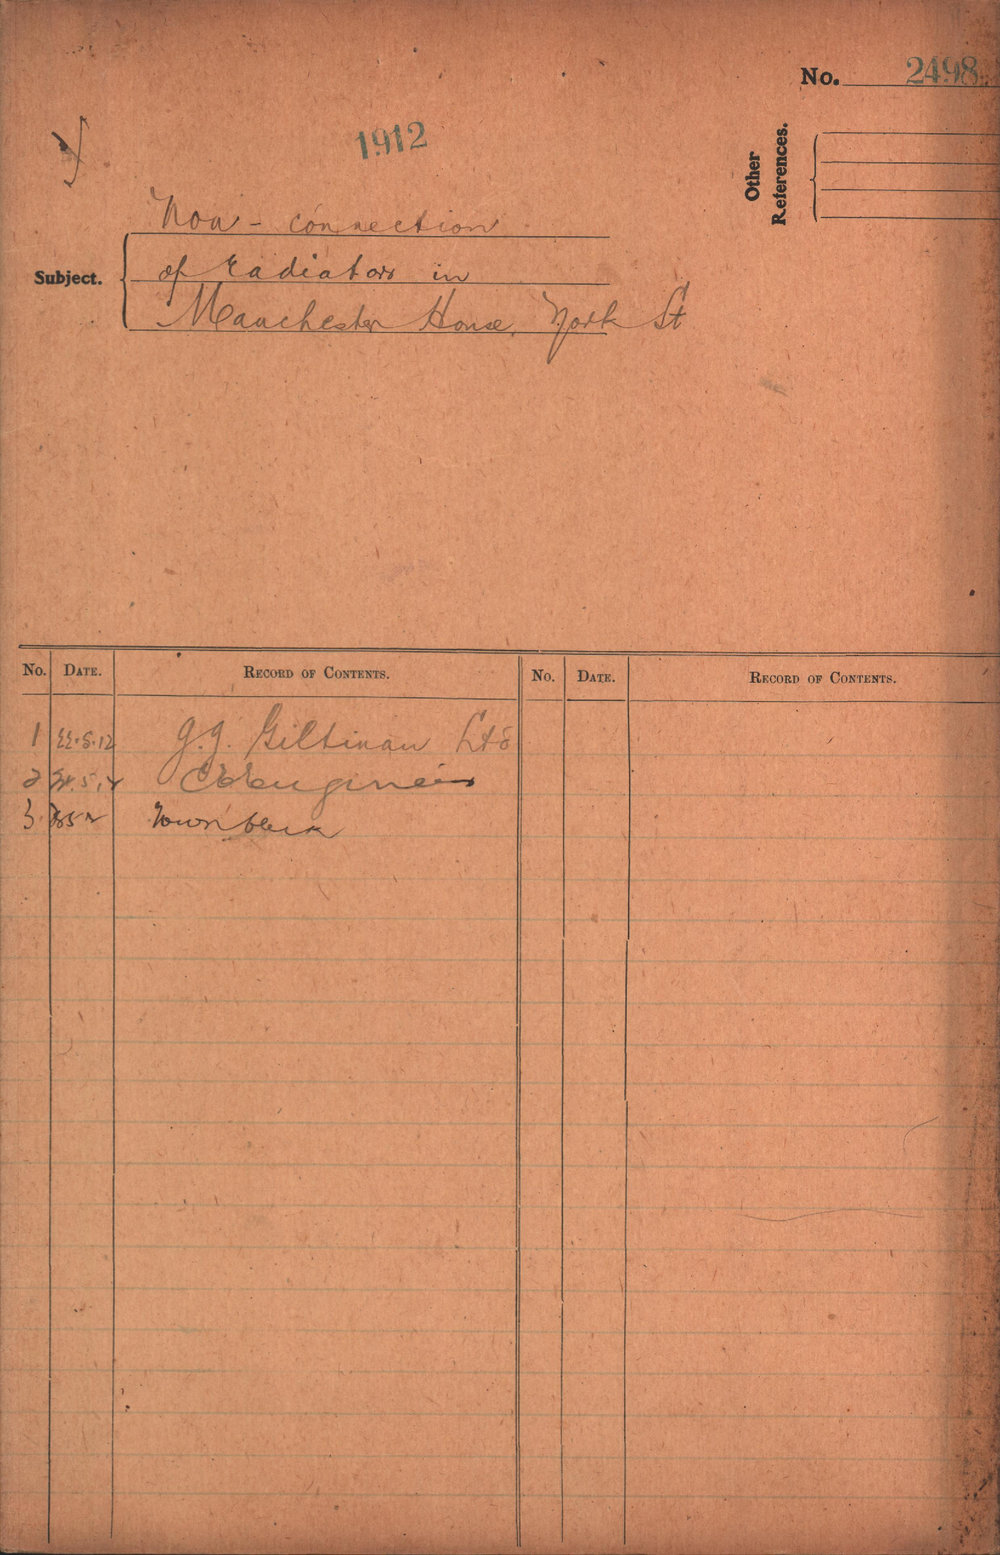 No. 2498
1912
Other
References.
Non-connection
Subject. of radiators in
Manchester House, York St
No. DATE. RECORD OF CONTENTS. No. DATE. RECORD OF CONTENTS.
1 22.5.12 J.J. Giltinan Ltd
2 Engineer
3 Town Clerk